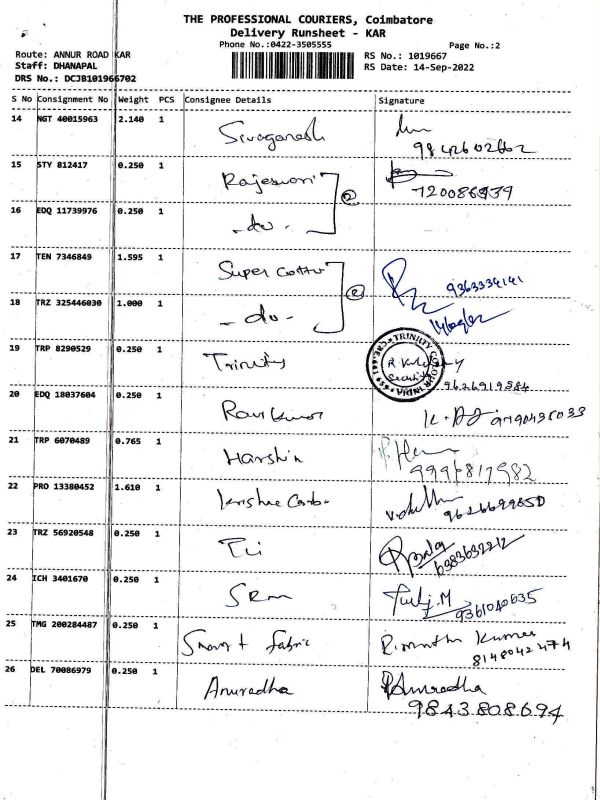 THE PROFESSIONAL COURIERS, Coimbatore
Delivery Runsheet - KAR
Phone No.:0422-3505555 Page No.:2
Route: ANNUR ROAD KAR RS No.: 1019667
Staff: DHANAPAL RS Date: 14-Sep-2022
DRS No.: DCJB101966702
S No Consignment No Weight PCS Consignee Details Signature
14 NGT 40015963 2.140 1 Sivaganesh
9842602662
15 STY 812417 0.250 1 Rajeswari
720086939
16 EDQ 11739976 0.250 1 -do- 2
17 TEN 7346849 1.595 1 Super 9363334141
18 TRZ 325446030 1.000 1 -do- 2
19 TRP 8290529 0.250 1 Trinity TRINITY
Security INDIA
9626919584
20 EDQ 18037604 0.250 1 Ravikumar
21 TRP 6070489 0.765 1 Harshin
22 PRO 13380452 1.610 1 Krishna
23 TRZ 56920548 0.250 1
6383632212
24 ICH 3401670 0.250 1 SRM
9361040635
25 TMG 200284487 0.250 1 Smart fabric Kumar
8148042474
26 DEL 70086979 0.250 1 Anuradha Anuradha
9843808694